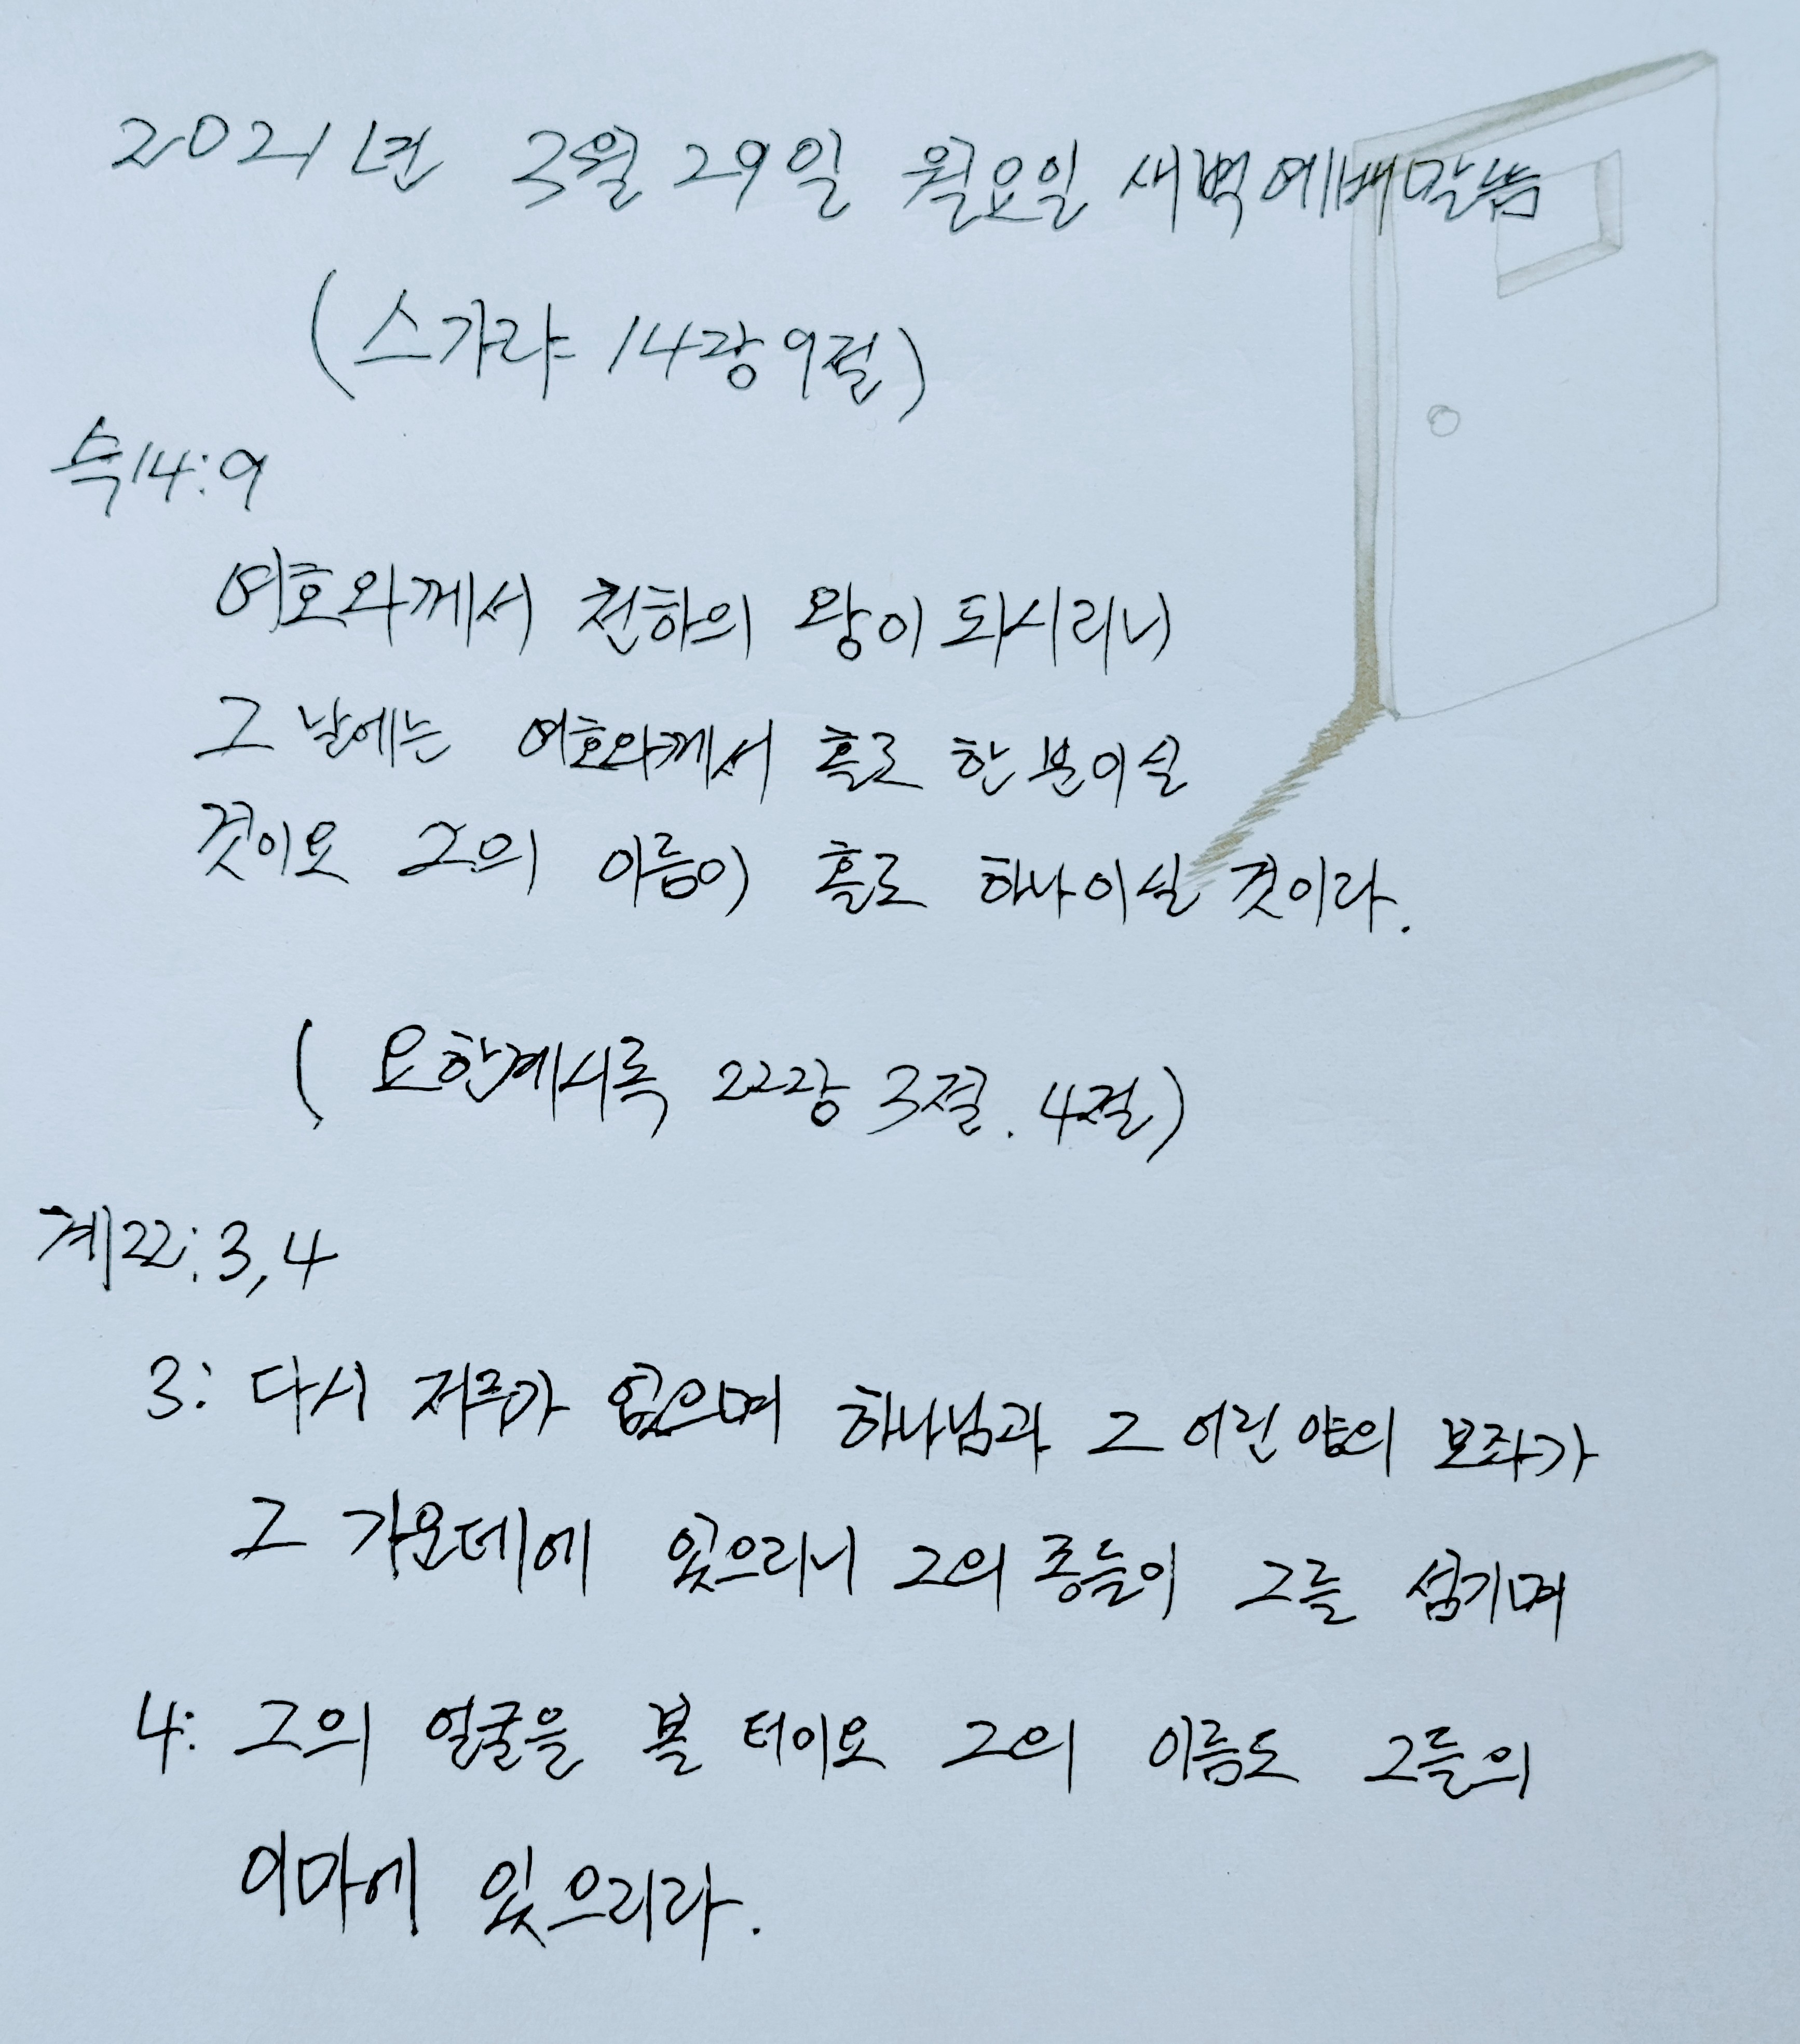 2021년 3월 29일 월요일 새벽예배말씀
(스가랴 14장 9절)
슥14:9
여호와께서 천하의 왕이 되시리니
그 날에는 여호와께서 홀로 한 분이실
것이요 그의 이름이 홀로 하나이실 것이라.
(요한계시록 22장 3절. 4절)
계22:3,4
3: 다시 저주가 없으며 하나님과 그 어린 양의 보좌가
그 가운데에 있으리니 그의 종들이 그를 섬기며
4: 그의 얼굴을 볼 터이요 그의 이름도 그들의
이마에 있으리라.